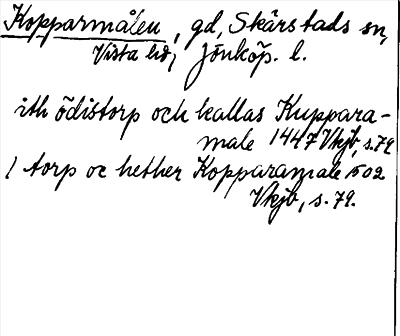 Kopparmålen, gd, Skärstads sn,
Vista hd, Jönköp. l.
ith ödistorp och kallas Kuppara-
male 1447 Vkjb, s.79
1 torp oc hether Kopparamale 1502
Vkjb, s. 79.